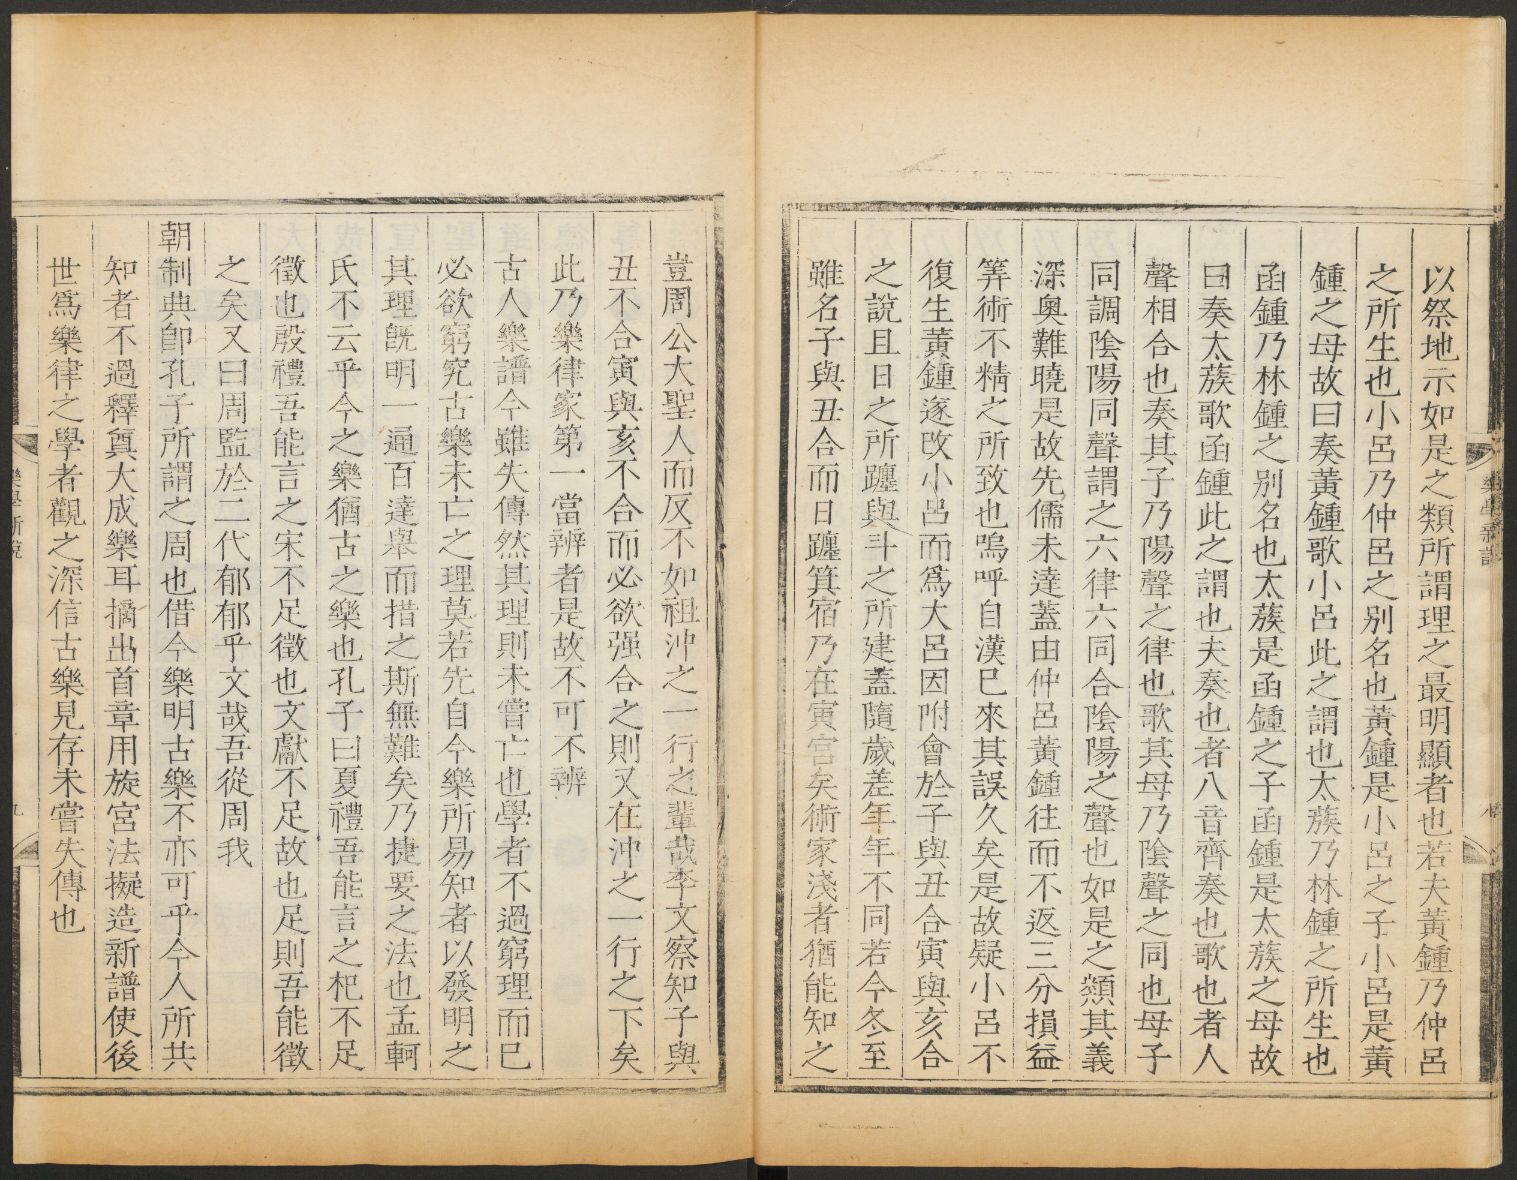 以祭地示如是之類所謂理之最明顯者也若夫黃鍾乃仲呂
之所生也小呂乃仲呂之別名也黃鍾是小呂之子小呂是黃
鍾之母故曰奏黃鍾歌小呂此之謂也太蔟乃林鍾之所生也
函鍾乃林鍾之別名也太蔟是函鍾之子函鍾是太蔟之母故
曰奏太蔟歌函鍾此之謂也夫奏也者八音齊奏也歌也者人
聲相合也奏其子乃陽聲之律也歌其母乃陰聲之同也母子
同調陰陽同聲謂之六律六同合陰陽之聲也如是之類其義
深奧難曉是故先儒未達蓋由仲呂黃鍾往而不返三分損益
筭術不精之所致也嗚呼自漢已來其誤久矣是故疑小呂不
復生黃鍾遂改小呂而爲大呂因附會於子與丑合寅與亥合
之說且日之所躔與斗之所建蓋隨歲差年年不同若今冬至
雖名子與丑合而日躔箕宿乃在寅宮矣術家淺者猶能知之
豈周公大聖人而反不如祖沖之一行之輩哉李文察知子與
丑不合寅與亥不合而必欲强合之則又在沖之一行之下矣
此乃樂律家第一當辨者是故不可不辨
古人樂譜今雖失傳然其理則未嘗亡也學者不過窮理而已
必欲窮究古樂未亡之理莫若先自今樂所易知者以發明之
其理旣明一通百達舉而措之斯無難矣乃捷要之法也孟軻
氏不云乎今之樂猶古之樂也孔子曰夏禮吾能言之杞不足
徵也殷禮吾能言之宋不足徵也文獻不足故也足則吾能徵
之矣又曰周監於二代郁郁乎文哉吾從周我
朝制典卽孔子所謂之周也借今樂明古樂不亦可乎今人所共
知者不過釋奠大成樂耳摘出首章用旋宮法擬造新譜使後
世爲樂律之學者觀之深信古樂見存未嘗失傳也
樂學新說